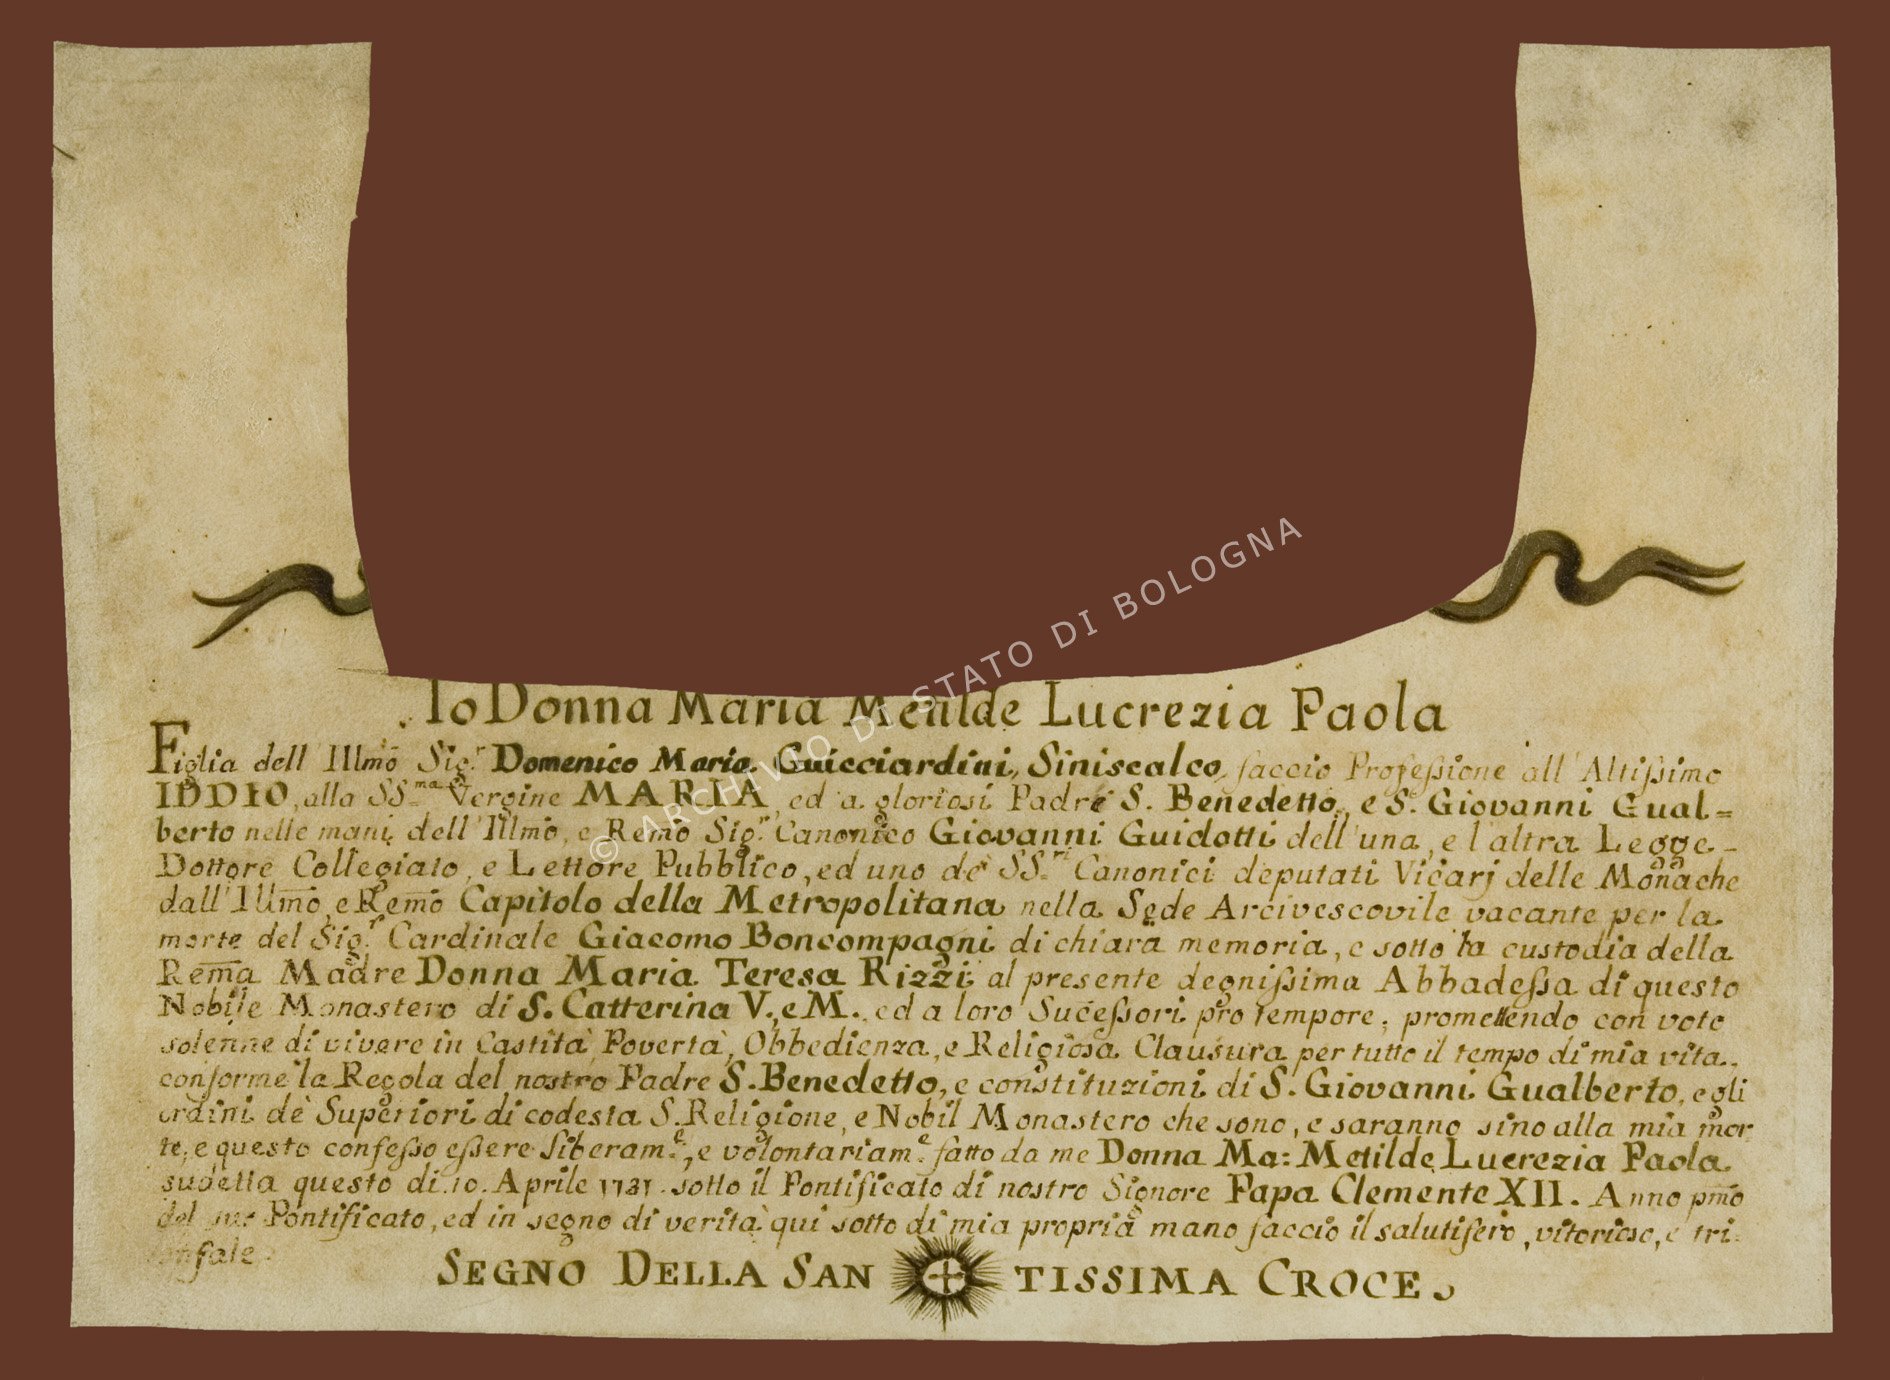 Io Donna Maria Metilde Lucrezia Paola
Figlia dell' Illmõ Sig.r Domenico Maria Guicciardini, Siniscalco, faccio Profeſsione all' Altiſsimo
IDDIO, alla SS.ma Vergine MARIA, ed a gloriosi Padri S. Benedetto, e S. Giovanni Gual=
berto nelle mani dell' Illmõ, e Remõ Sig.r Canonico Giovanni Guidotti dell' una, e l'altra Legge
Dottore Collegiato, e Lettore Pubblico, ed uno de' SS.ri Canonici deputati Vicarj delle Monache
dall' Illmõ, e Remõ Capitolo della Metropolitana nella Sede Arcivescovile vacante per la
morte del Sig.r Cardinale Giacomo Boncompagni di chiara memoria, e sotto la custodia della
Remã Madre Donna Maria Teresa Rizzi al presente degniſsima Abbadeſsa di questo
Nobile Monastero di S. Catterina V., e M., ed a loro Suceſsori prõ tempore, promettendo con voto
solenne di vivere in Castità, Povertà, Obbedienza, e Religiosa Clausura per tutto il tempo di mia vita
conforme la Regola del nostro Padre S. Benedetto, e constituzioni di S. Giovanni Gualberto, e gli
ordini de' Superiori di codesta S. Religione, e Nobil Monastero che sono, e saranno sino alla mia mor
te, e questo confeſso eſsere liberam.e, e volontariam.e fatto da me Donna Ma: Metilde Lucrezia Paola
sudetta questo di 10. Aprile 1731. sotto il Pontificato di nostro Signore Papa Clemente XII. Anno pmõ
del suo Pontificato, ed in segno di verita qui sotto di mia propria mano faccio il salutifero, vitorioso, e tri
onfale
SEGNO DELLA SAN TISSIMA CROCE
© ARCHIVIO DI STATO DI BOLOGNA